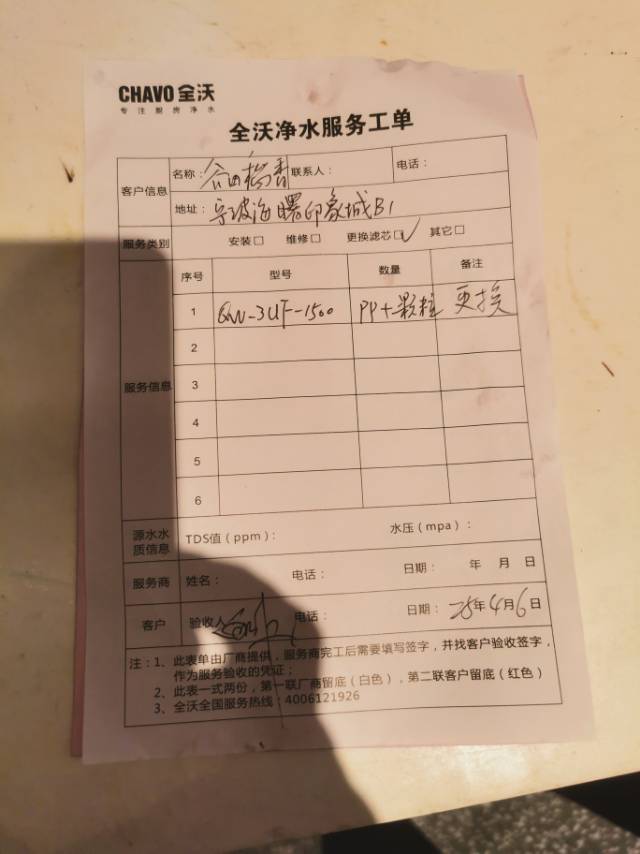 CHAVO 全沃
专注厨房净水
全沃净水服务工单
客户信息 名称： 谷田稻香 联系人： 电话：
地址： 宁波海曙印象城B1
服务类别 安装□ 维修□ 更换滤芯□✓ 其它□
服务信息 序号 型号 数量 备注
1 QW-3UF-1500 PP+颗粒 更换
2
3
4
5
6
源水水质信息 TDS值（ppm）： 水压（mpa）：
服务商 姓名： 电话： 日期： 年 月 日
客户 验收 电话： 日期： 25年4月6日
注：1、此表单由厂商提供，服务商完工后需要填写签字，并找客户验收签字，
作为服务验收的凭证；
2、此表一式两份，第一联厂商留底（白色），第二联客户留底（红色）
3、全沃全国服务热线：4006121926